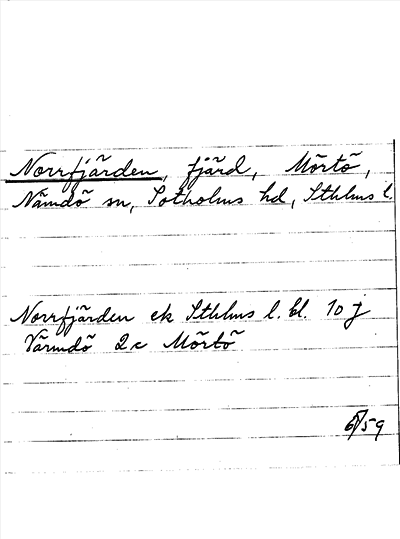 Norrfjärden, fjärd, Mörtö,
Nämdö sn, Sotholms hd, Sthlms l.
Norrfjärden ek Sthlms l. bl. 10 j
Värmdö 2c Mörtö
59